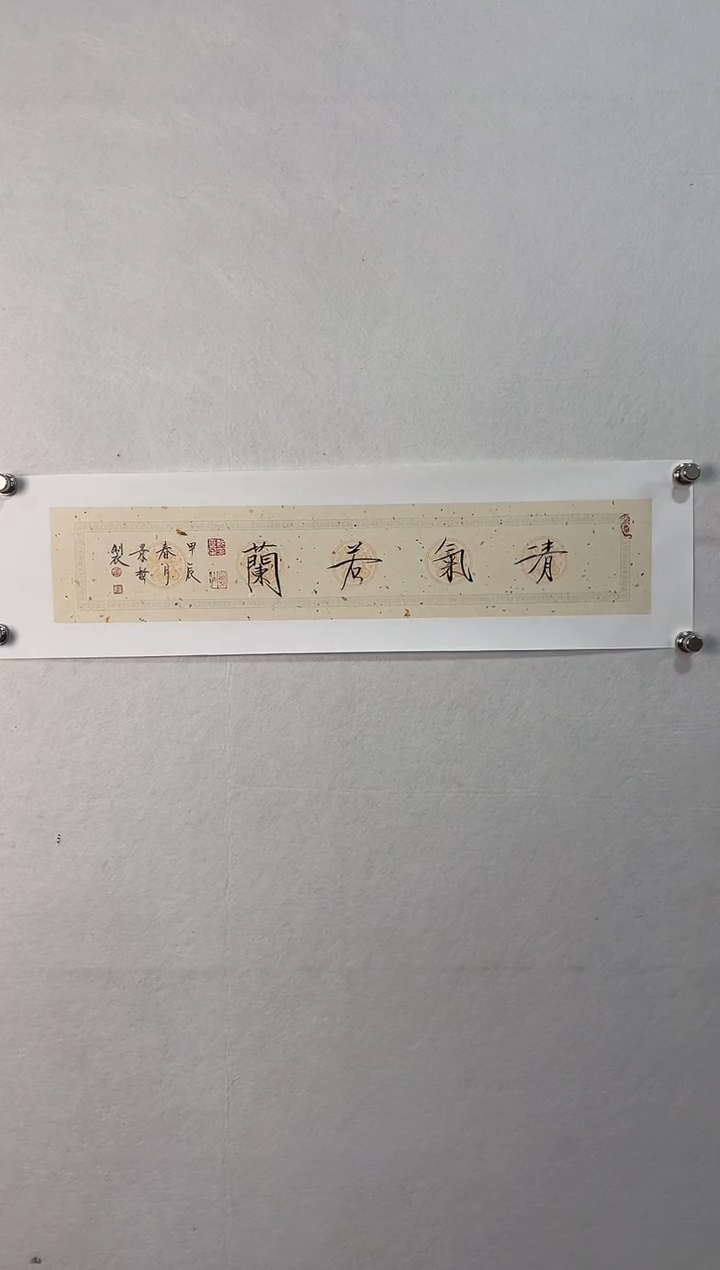 清氣若蘭
甲辰
春月
景
製